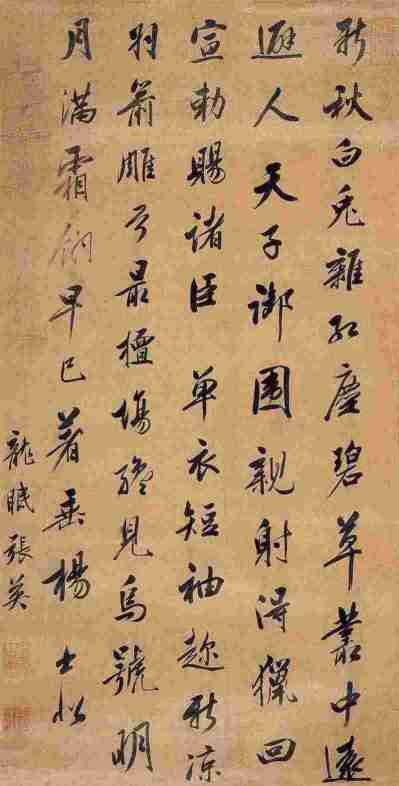 新秋白兔雜紅塵碧草叢中遠
避人天子御圍親射得獵回
宣勅賜諸臣單衣短袖趂新涼
羽箭雕弓最檀場纔見烏號明
月滿霜早已著垂楊
龍眠張英